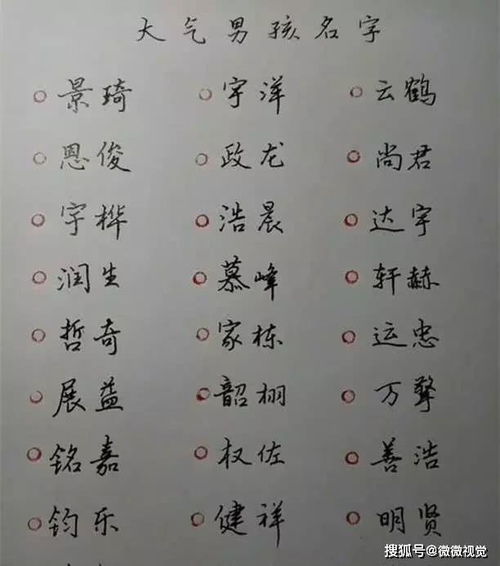 大气男孩名字
景琦 宇洋 云鹤
恩俊 政龙 尚君
宇桦 浩晨 达宇
润生 慕峰 轩赫
哲奇 家栋 运忠
展益 韶栩 万擎
铭嘉 权佐 善浩
钧乐 健祥 明贤
搜狐号@微微视觉